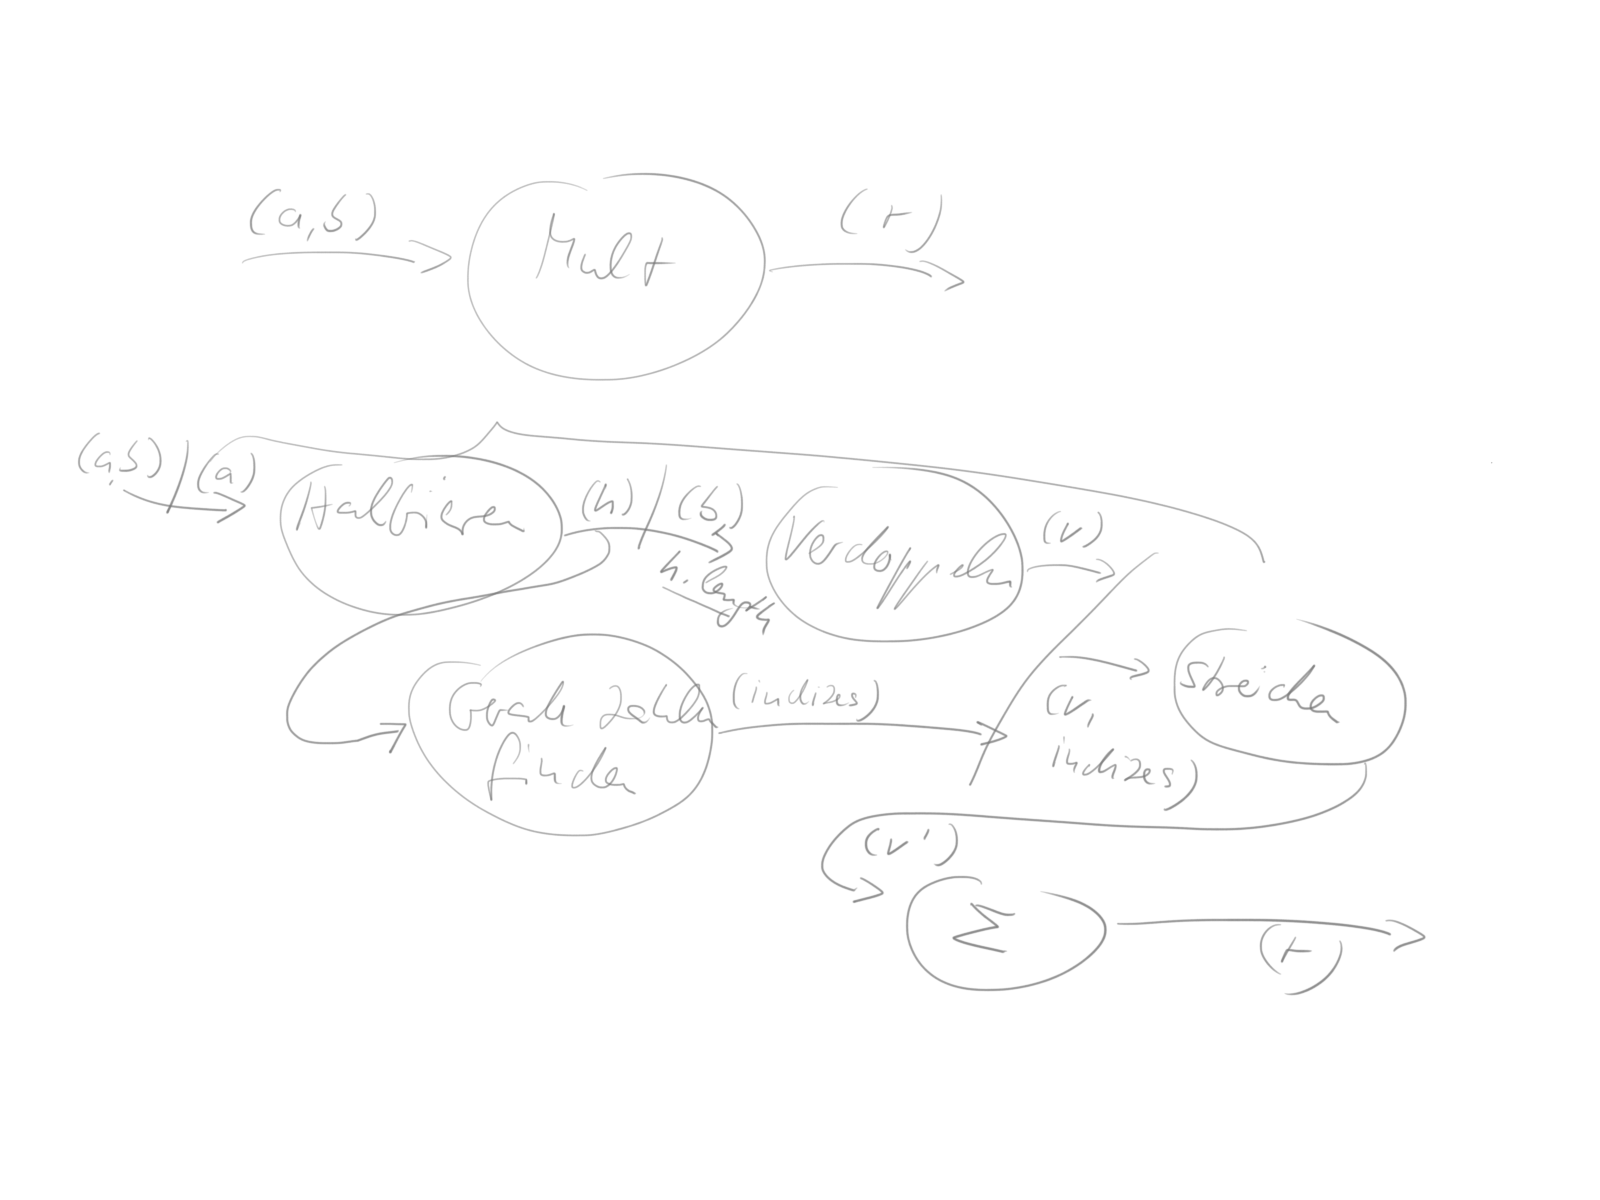 (a,b)
Mult
(r)
(a,b) / (a)
Halbieren
(h) / (b)
h.length
Verdoppeln
(v)
Gerade Zahlen
finden
(indizes)
(v,
indizes)
streichen
(v')
Σ
(r)